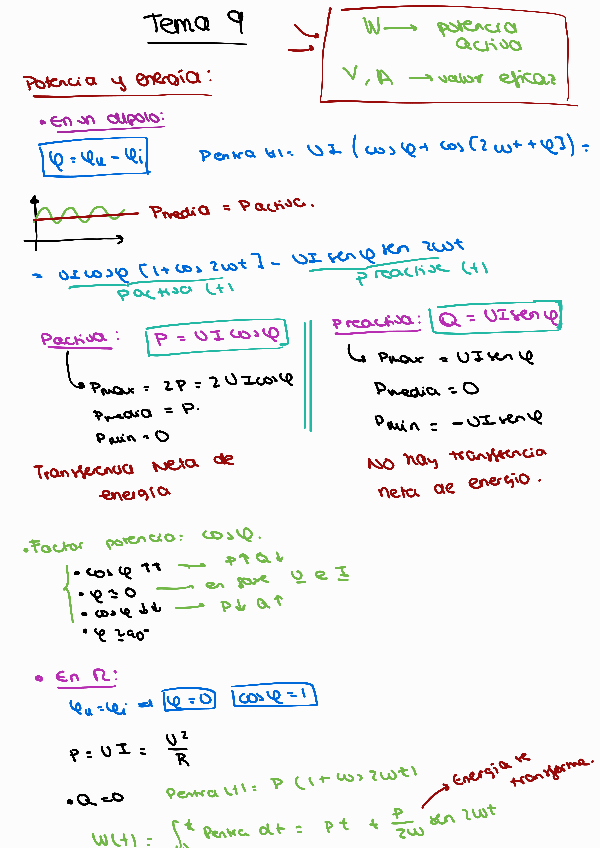 Tema 9
W → potencia
activa
V, A → valor eficaz
Potencia y energía:
• En un dipolo:
φ = φu - φi
Pentra (t) = UI (cos φ + cos [2wt + φ]) =
Pmedia = Pactiva.
= UI cos φ [1 + cos 2wt] - UI sen φ sen 2wt
Pactiva (t)
Preactiva (t)
Pactiva: P = UI cos φ
Pmax = 2P = 2UI cos φ
Pmedia = P.
Pmin = 0
Transferencia Neta de
energía
Preactiva: Q = UI sen φ
Pmax = UI sen φ
Pmedia = 0
Pmin = -UI sen φ
NO hay transferencia
neta de energía.
• Factor potencia: cos φ.
• cos φ ↑↑ → P↑ Q↓
• φ ≃ 0 → en fase U e I
• cos φ ↓↓ → P↓ Q↑
• φ ≃ 90°
• En R:
φu = φi ⇒ φ = 0 cos φ = 1
P = UI = U²/R
• Q = 0
Pentra (t) = P (1 + cos 2wt)
Energía se
transforma.
W(t) = ∫₀ᵗ Pentra dt = Pt + P/2w sen 2wt